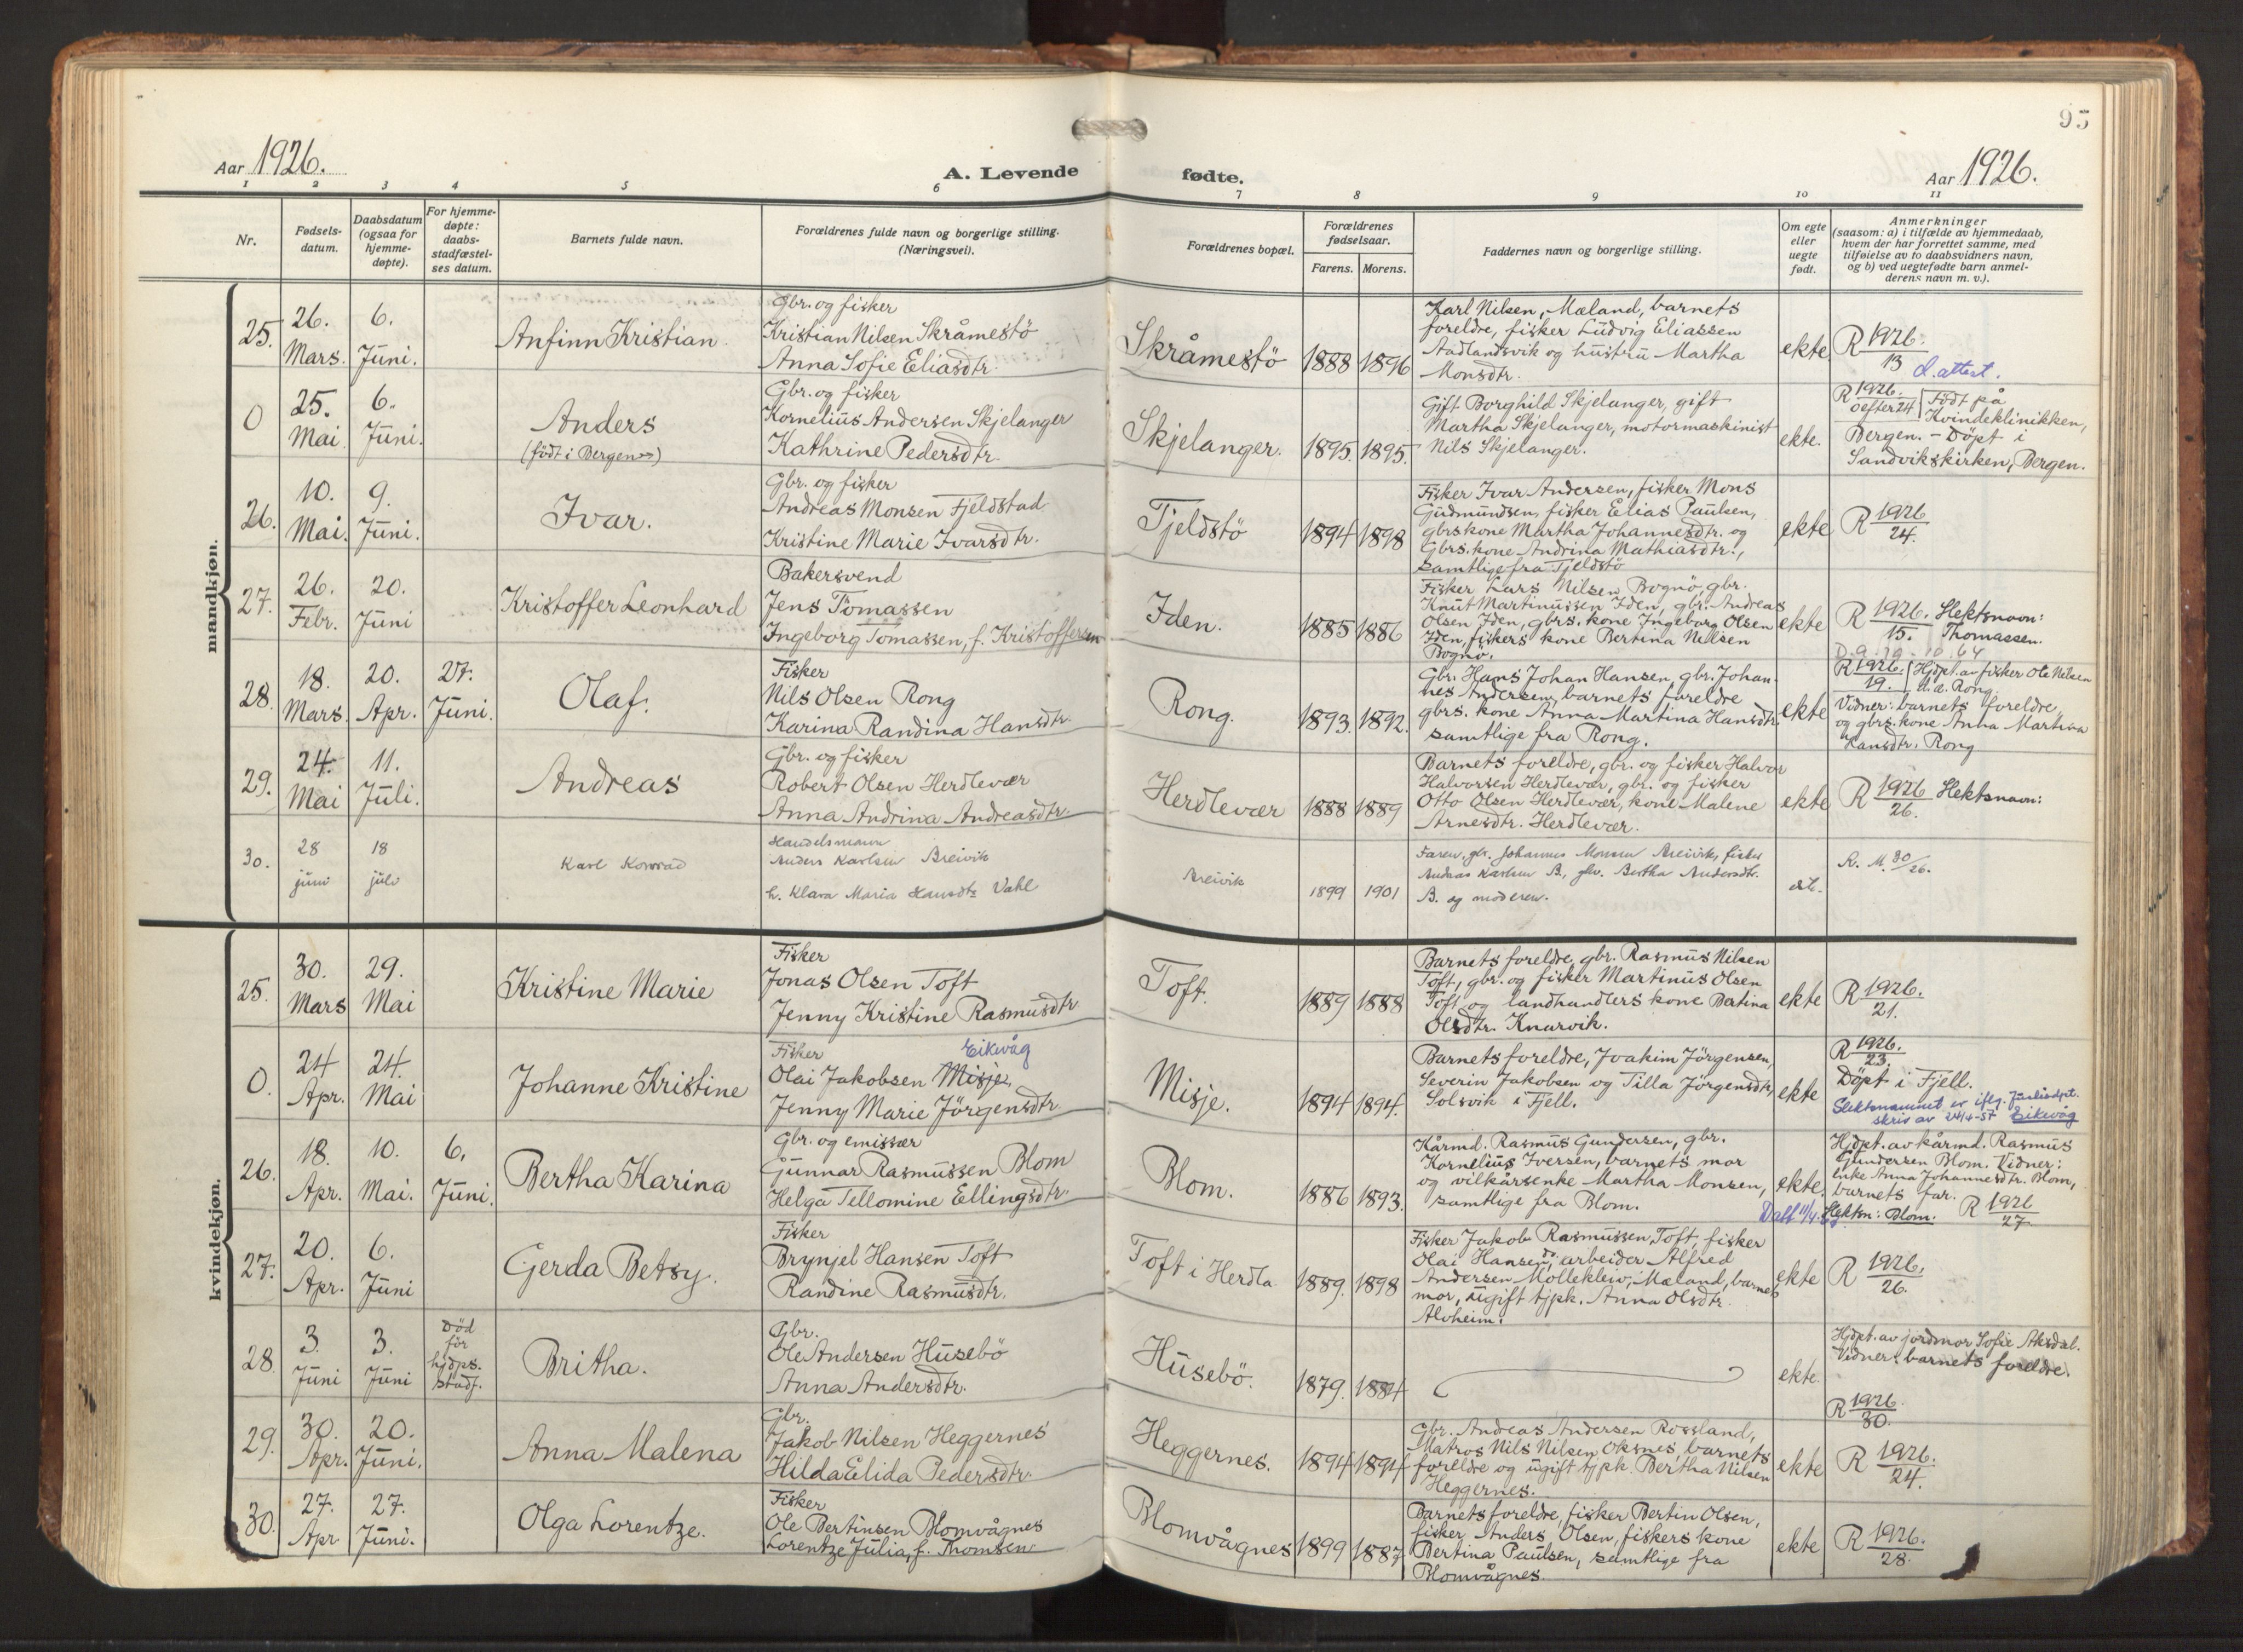 95
Aar 1926.
A. Levende fødte.
Aar 1926.
1 2 3 4 5 6 7 8 9 10 11
Nr.
Fødsels-
datum.
Daabsdatum
(ogsaa for
hjemme-
døpte).
For hjemme-
døpte:
daabs-
stadfæstel-
ses datum.
Barnets fulde navn.
Forældrenes fulde navn og borgerlige stilling.
(Næringsvei).
Forældrenes bopæl.
Forældrenes
fødselsaar.
Farens. Morens.
Faddernes navn og borgerlige stilling.
Om egte
eller
uegte
født.
Anmerkninger
(saasom: a) i tilfælde av hjemmedaab,
hvem der har forrettet samme, med
tilføielse av to daabsvidners navn,
og b) ved uegtefødte barn anmel-
derens navn m. v.).
mandkjøn.
25.
26.
Mars.
6.
Juni.
Anfinn Kristian.
Gbr. og fisker
Kristian Nilsen Skråmestö
Anna Sofie Eliasdtr.
Skråmestö
1888 1896
Karl Nilsen, Mæland, barnets
foreldre, fisker Ludvig Eliassen
Aadlandsvik og hustru Martha
Monsdtr.
ekte
R 1926.
13
d. attest.
0
25.
Mai.
6.
Juni.
Anders
(födt i Bergen)
Gbr. og fisker
Kornelius Andersen Skjelanger
Kathrine Pedersdtr.
Skjelanger.
1895. 1895.
Gift Borghild Skjelanger, gift
Martha Skjelanger, motormaskinist
Nils Skjelanger.
ekte.
R 1926.
0 efter 24
Födt på
Kvindeklinikken,
Bergen. - Döpt i
Sandvikskirken, Bergen.
26.
10.
Mai.
9.
Juni.
Ivar.
Gbr. og fisker
Andreas Monsen Fjeldstad
Kristine Marie Ivarsdtr.
Tjeldstö
1894 1898
Fisker Ivar Andersen, fisker Mons
Gudmundsen, fisker Elias Paulsen,
gbrs kone Martha Johannesdtr. og
Gbrs. kone Andrina Mathiasdtr.,
samtlige fra Tjeldstö
ekte
R 1926
24.
27.
26.
Febr.
20.
Juni
Kristoffer Leonhard
Bakersvend
Jens Tomassen
Ingeborg Tomassen, f. Kristoffersen
Iden.
1885 1886
Fisker Lars Nilsen Bognö, gbr.
Knut Martinussen Iden, gbr. Andreas
Olsen Iden, gbrs. kone Ingeborg Olsen
Iden, fiskers kone Bertina Nilsen
Bognö.
ekte
R 1926.
15.
Slektsnavn:
Thomassen.
28.
18.
Mars.
20.
Apr.
27.
Juni.
Olaf.
Fisker
Nils Olsen Rong
Karina Randina Hansdtr.
Rong.
1893. 1892.
Gbr. Hans Johan Hansen, gbr. Johan-
nes Andersen, barnets foreldre
gbrs. kone Anna Martina Hansdtr.
samtlige fra Rong.
ekte
R 1926.
19.
Hjdpt. av fisker Ole Nilsen
Rong
Vidner: barnets foreldre,
og gbrs. kone Anna Martina
Hansdtr. Rong
29.
24.
Mai
11.
Juli.
Andreas
Gbr. og fisker
Robert Olsen Herdlevær
Anna Andrina Andreasdtr.
Herdlevær
1888 1889
Barnets foreldre, gbr. og fisker Halvor
Halvorsen Herdlevær, gbr. og fisker
Otto Olsen Herdlevær, kone Malene
Arnesdtr. Herdlevær.
ekte
R 1926
26.
Slektsnavn:
30.
28
juni
18
juli
Karl Konrad
Handelsmann
Anders Karlsen Breivik
h. Klara Maria Hansdtr Vahl
Breivik
1899 1901
Faren, gbr. Johannes Monsen Breivik, fisker
Andreas Karlsen B., Bertha Andersdtr.
B. og moderen.
ekt.
R. M. 30/26.
kvindekjøn.
25.
30.
Mars
29.
Mai
Kristine Marie
Fisker
Jonas Olsen Toft
Jenny Kristine Rasmusdtr
Toft.
1889 1888
Barnets foreldre, gbr. Rasmus Nilsen
Toft, gbr. og fisker Martinus Olsen
Toft og landhandlers kone Bertina
Olsdtr. Knarvik.
ekte
R 1926.
21.
0.
24
Apr.
24.
Mai
Johanne Kristine
Fisker Eikevåg
Olai Jakobsen Misje
Jenny Marie Jörgensdtr.
Misje.
1894 1894.
Barnets foreldre, Joakim Jörgensen,
Severin Jakobsen og Tilla Jörgensdtr,
Solsvik i Fjell.
ekte
R 1926.
23.
Döpt i Fjell.
Slektsnavnet er iflg. Justisdpt.
skriv av 24/4-57 Eikevåg
26.
18.
Apr.
10.
Mai.
6.
Juni.
Bertha Karina
Gbr. og emissær
Gunnar Rasmussen Blom
Helga Tellomine Ellingsdtr.
Blom.
1886 1893.
Kårmd. Rasmus Gundersen, gbr.
Kornelius Iversen, barnets mor
og vilkårsenke Martha Monsen,
samtlige fra Blom.
ekte.
Hjdpt. av kårmd. Rasmus
Gundersen Blom. Vidner:
enke Anna Johannesdtr. Blom,
barnets far.
Slektsn: Blom. R 1926
27.
27.
20.
Apr.
6.
Juni
Gerda Betsy.
Fisker
Brynjel Hansen Toft
Randine Rasmusdtr.
Toft i Herdla
1889. 1898
Fisker Jakob Rasmussen Toft, fisker
Olai Hansen do., arbeider Alfred
Andersen Mollekleiv, Mæland, barnets
mor, ugift tjpk. Anna Olsdtr.
Alvheim.
ekte
R 1926.
26.
28.
3.
Juni
3.
Juni
Död
för
hjdps.
stadf.
Britha.
Gbr.
Ole Andersen Husebö
Anna Andersdtr.
Husebö.
1879. 1884
ekte.
Hjdpt. av jordmor Sofie Aksdal.
Vidner: barnets foreldre.
R 1926.
30.
29.
30.
Apr.
20.
Juni.
Anna Malena
Gbr.
Jakob Nilsen Heggernes
Hilda Elida Pedersdtr.
Heggernes.
1894 1894
Gbr. Andreas Andersen Rossland,
Matros Nils Nilsen Oksnes, barnets
foreldre og ugift tjpk. Bertha Nilsen
Heggernes.
ekte
R 1926.
24.
30.
27.
Apr
27.
Juni.
Olga Lorentze.
Fisker
Ole Bertinsen Blomvågnes
Lorentze Julia, f. Thomsen
Blomvågnes
1899 1887
Barnets foreldre, fisker Bertin Olsen,
fisker Anders Olsen, fiskers kone
Bertina Paulsen, samtlige fra
Blomvågnes.
ekte
R 1926.
28.